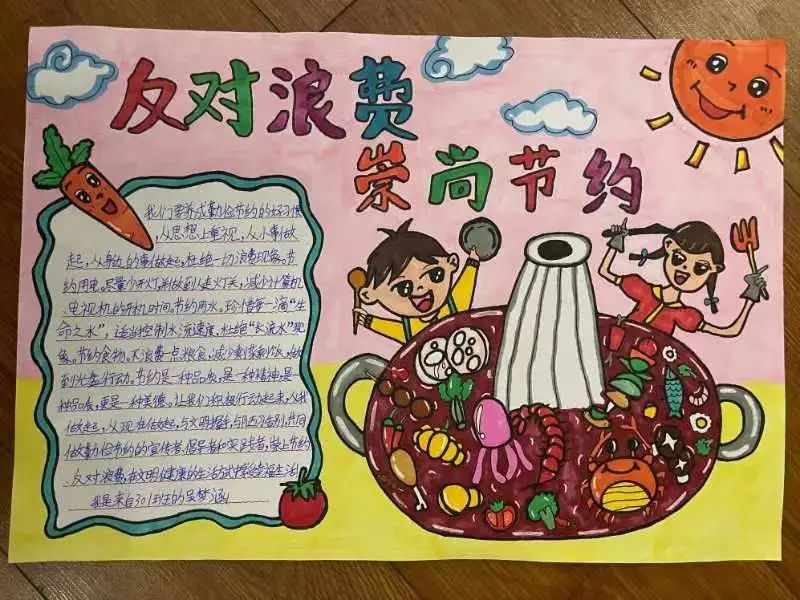 反对浪费
崇尚节约
我们要养成勤俭节约的好习惯
,从思想上重视,从小事做
起,从身边的事做起,杜绝一切浪费现象。节
约用电。尽量少开灯,做到人走灯关,减少计算机
、电视机的开机时间。节约用水。珍惜每一滴“生
命之水”,适当控制水流速度,杜绝“长流水”现
象。节约食物。不浪费一点粮食,减少剩菜剩饭,做
到光盘行动。节约是一种品质,是一种精神,是
种品质,更是一种美德。让我们积极行动起来,从我
做起,从现在做起,与文明握手,与陋习告别,共同
做勤俭节约的宣传者,倡导者和实践者,崇上节约
、反对浪费,在文明健康的生活方式中探索幸福生活!
我是来自301班的吴梦涵!